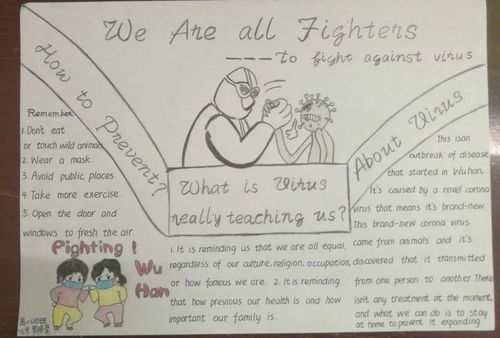 We Are all Fighters
---- to fight against virus
How to Prevent?
Remember
1. Don't eat
or touch wild animals.
2. Wear a mask.
3. Avoid public places.
4. Take more exercise.
5. Open the door and
windows to fresh the air.
Fighting!
Wu
Han
What is Virus
really teaching us?
1. It is reminding us that we are all equal,
regardless of our culture, religion, occupation,
or how famous we are. 2. It is reminding
that how previous our health is and how
important our family is.
About Virus
This is an
outbreak of disease
that started in Wuhan.
It's caused by a novel corona
virus that means it's brand-new
This brand-new corona virus
came from animals and it's
discovered that it transmitted
from one person to another. There
isn't any treatment at the moment,
and what we can do is to stay
at home to prevent it expanding.